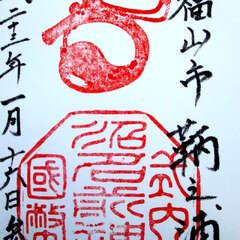 福山市鞆之浦
式内
沼名前神
國幣
二十三年一月十六日参